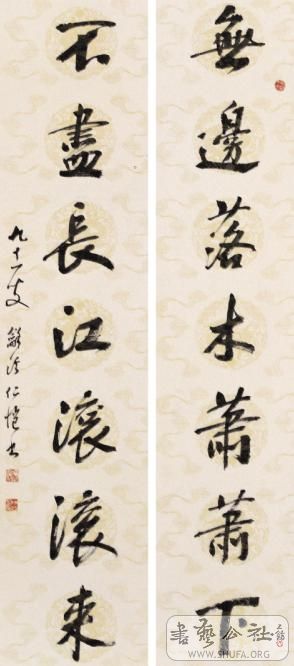 無邊落木蕭蕭下
不盡長江滾滾來
九十一叟 龢溪仁愷书
書藝公社
WWW.SHUFA.ORG